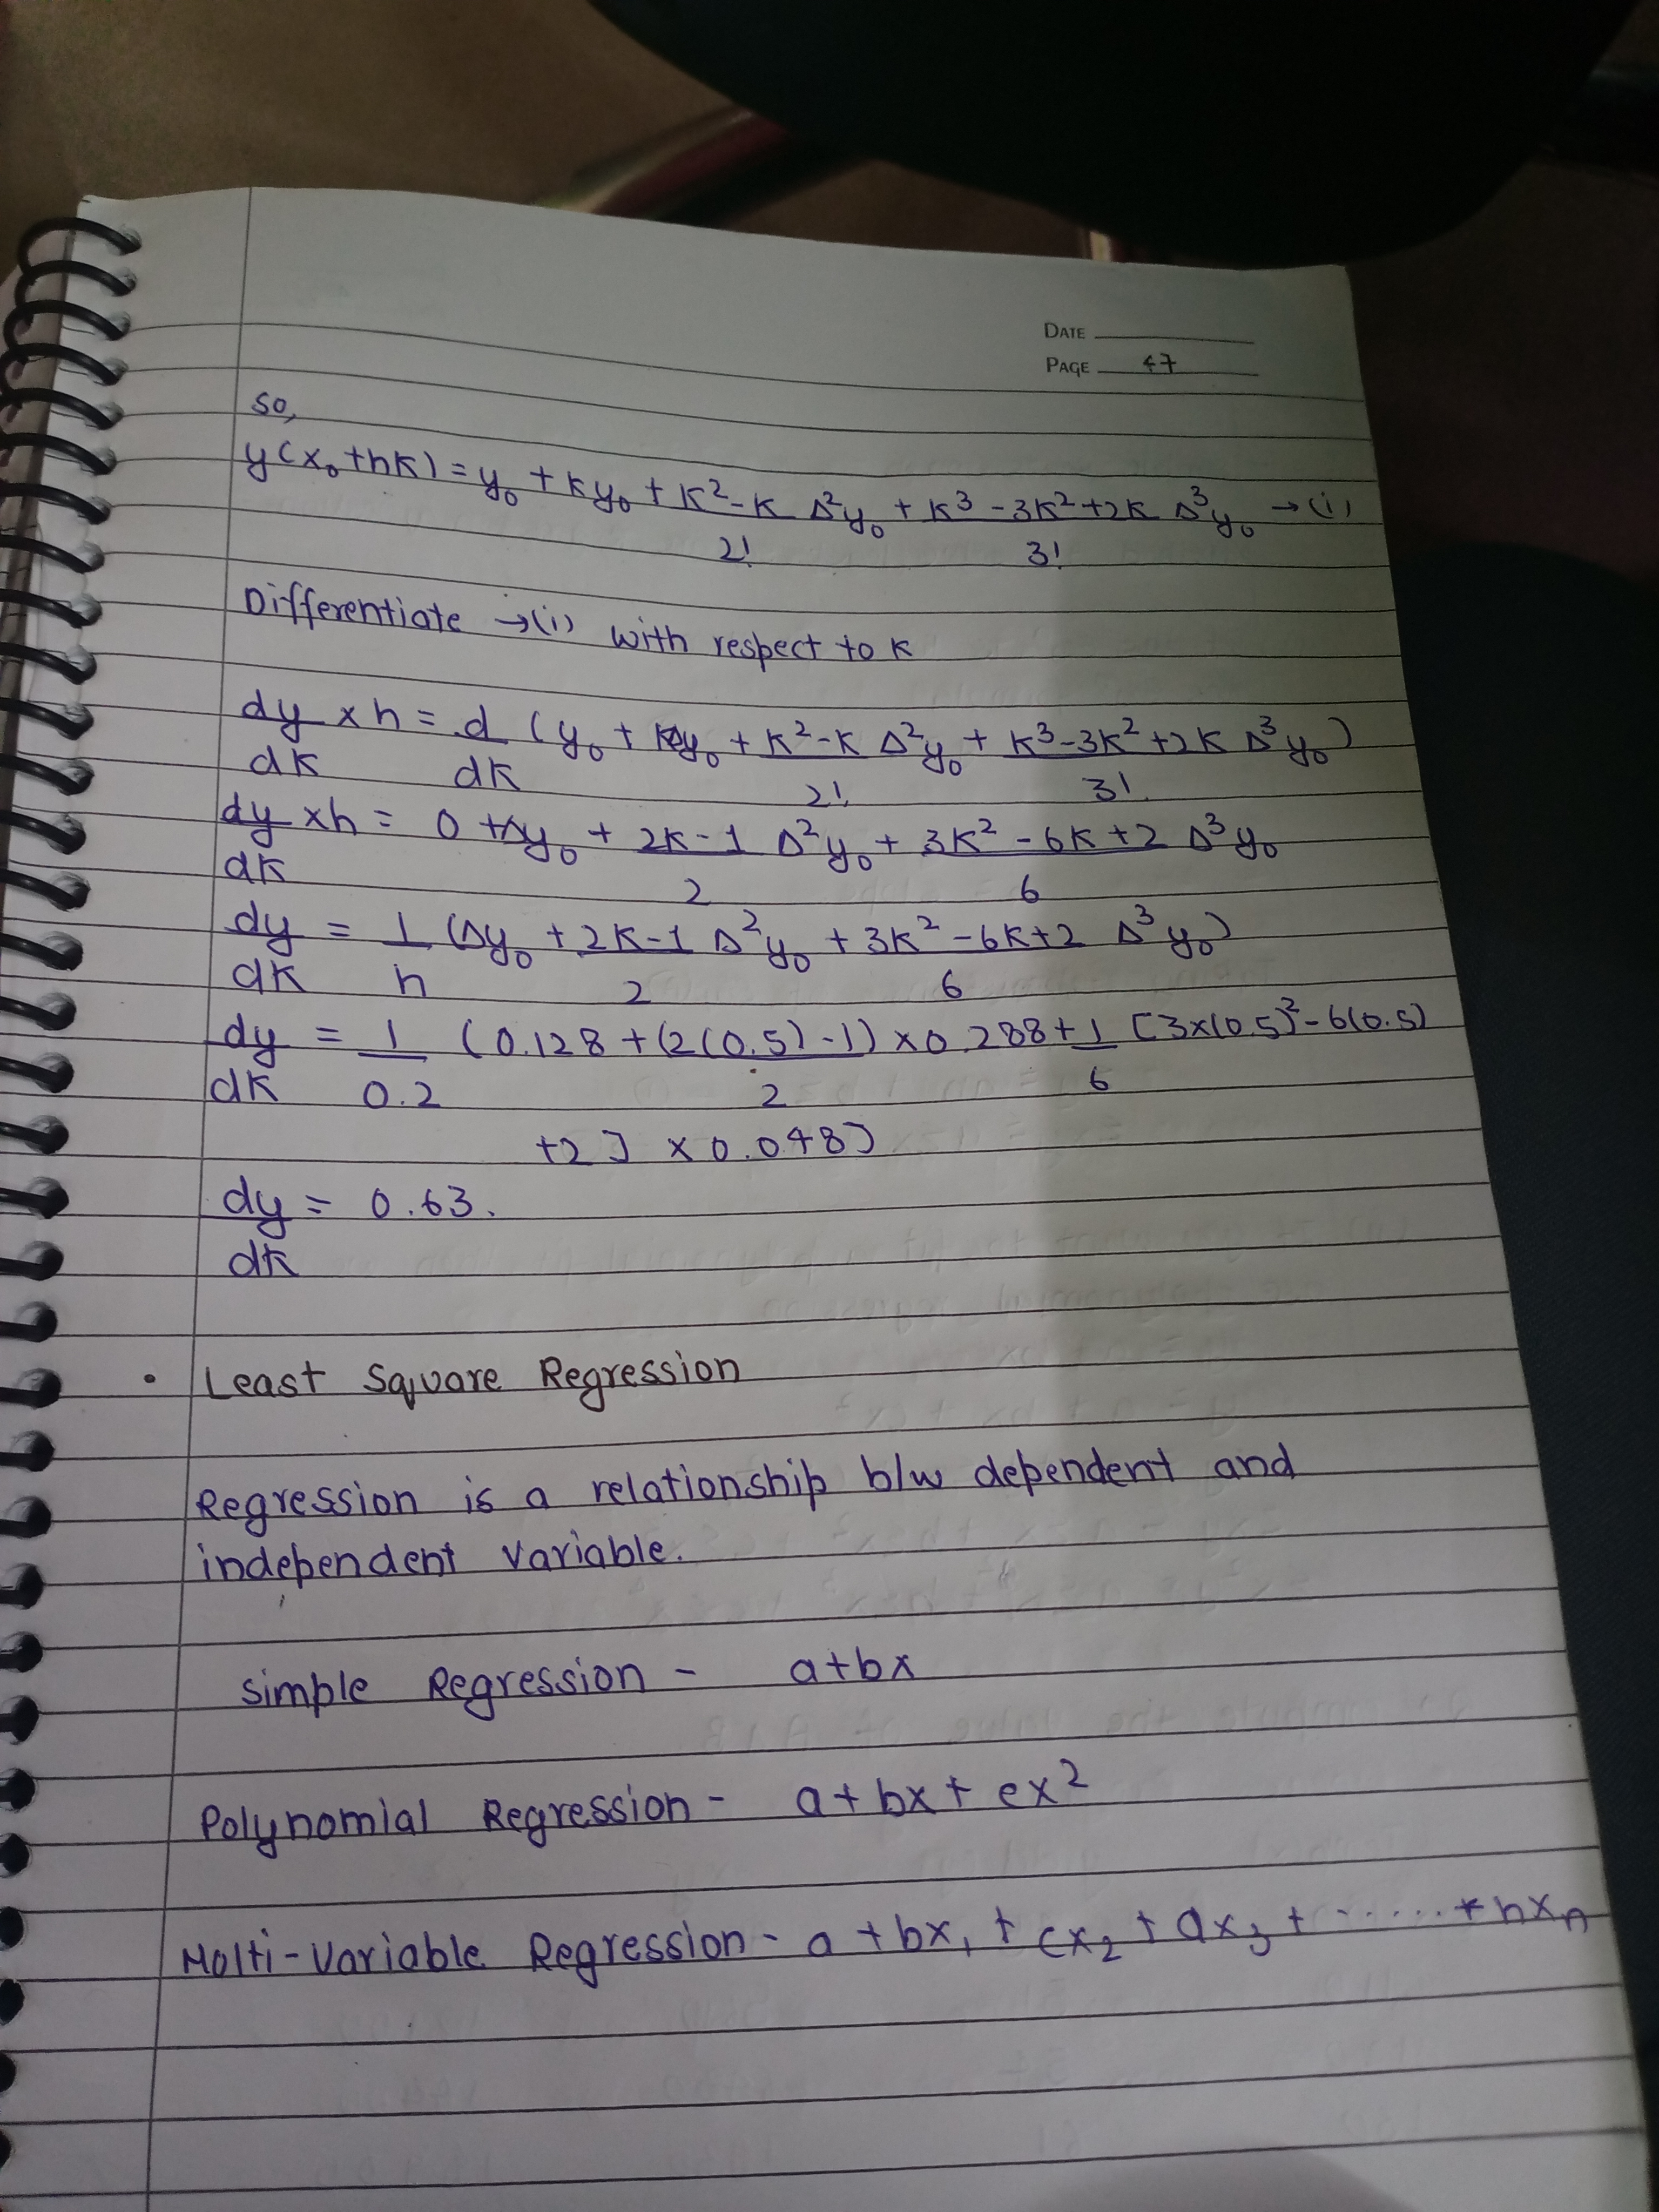 DATE
PAGE 47
so,
y(x₀+hk) = y₀ + ky₀ + k²-k/2! Δ²y₀ + k³-3k²+2k/3! Δ³y₀ →(i)
Differentiate →(i) with respect to k
dy/dk × h = d/dk (y₀ + kΔy₀ + k²-k/2! Δ²y₀ + k³-3k²+2k/3! Δ³y₀)
dy/dk × h = 0 + Δy₀ + 2k-1/2 Δ²y₀ + 3k²-6k+2/6 Δ³y₀
dy/dk = 1/h (Δy₀ + 2k-1/2 Δ²y₀ + 3k²-6k+2/6 Δ³y₀)
dy/dk = 1/0.2 (0.128 + (2(0.5)-1)/2 × 0.288 + 1/6 [3×(0.5)²-6(0.5)
+2] × 0.048)
dy/dk = 0.63.
• Least Square Regression
Regression is a relationship b/w dependent and
independent variable.
Simple Regression - a+bx
Polynomial Regression - a+bx+cx²
Multi-Variable Regression - a+bx₁+cx₂+dx₃+......+nxₙ